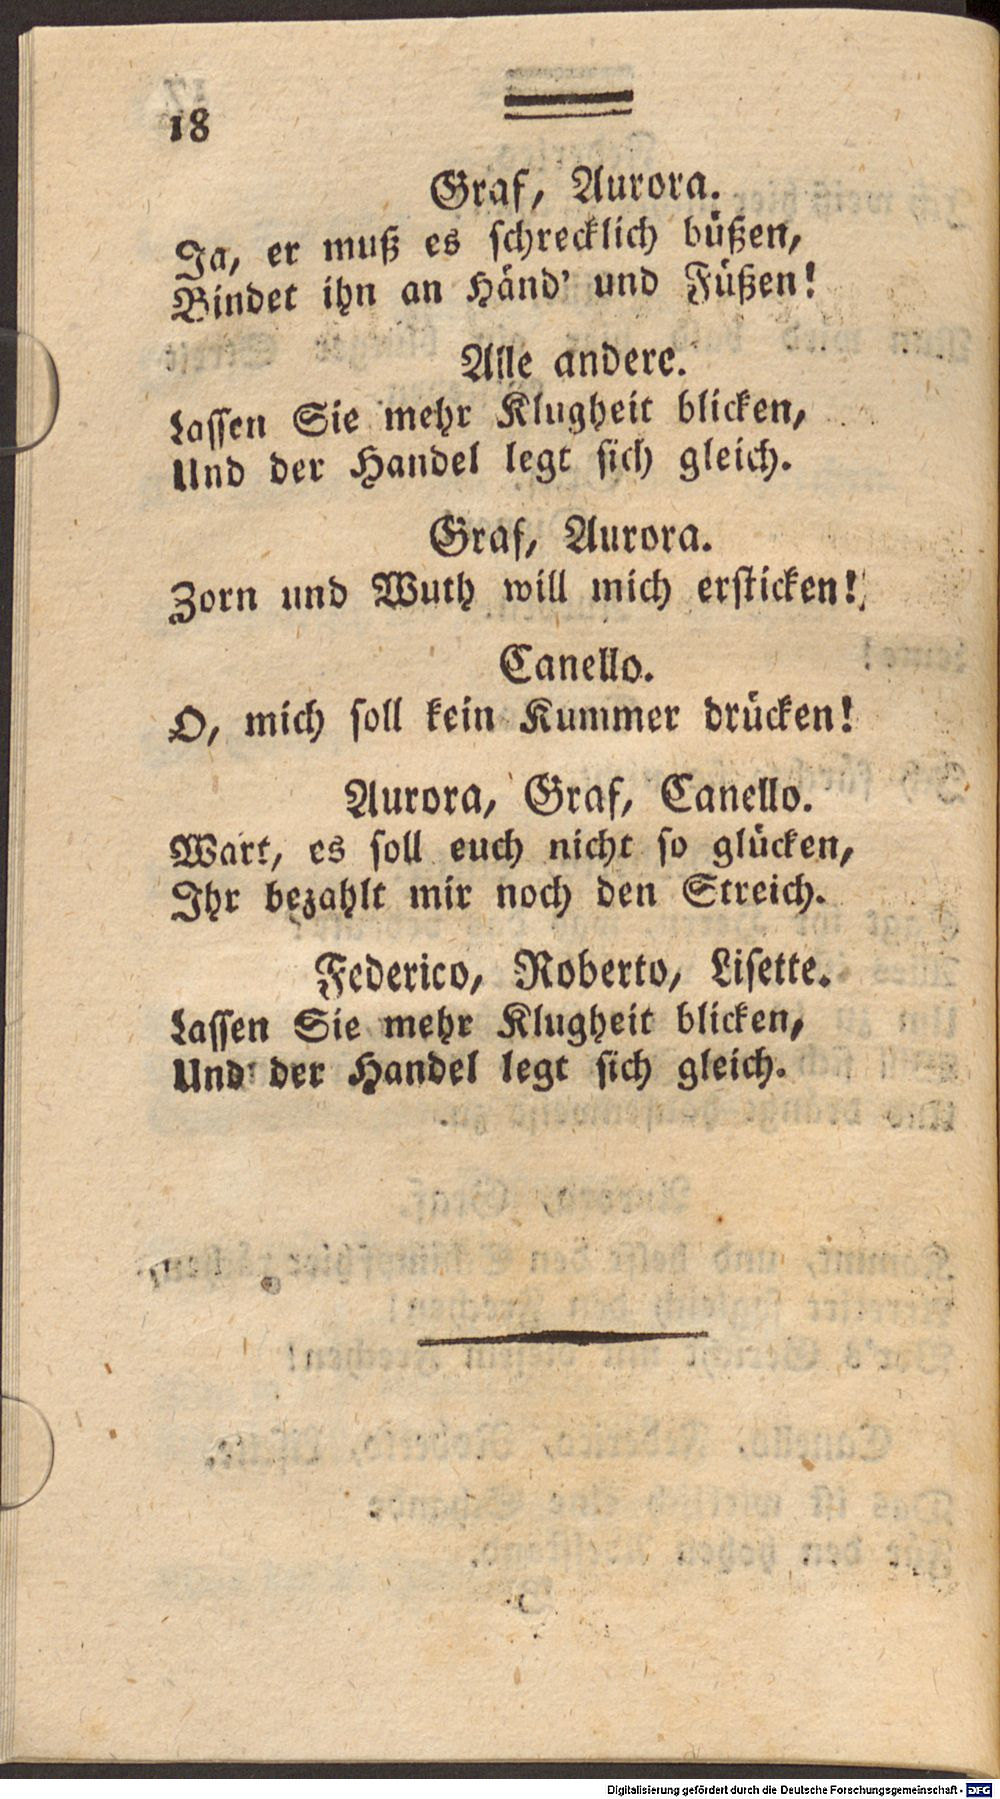 18
Graf, Aurora.
Ja, er muß es schrecklich büßen,
Bindet ihn an Händ' und Füßen!
Alle andere.
Lassen Sie mehr Klugheit blicken,
Und der Handel legt sich gleich.
Graf, Aurora.
Zorn und Wuth will mich ersticken!
Canello.
O, mich soll kein Kummer drücken!
Aurora, Graf, Canello.
Wart, es soll euch nicht so glücken,
Ihr bezahlt mir noch den Streich.
Federico, Roberto, Lisette.
Lassen Sie mehr Klugheit blicken,
Und der Handel legt sich gleich.
Digitalisierung gefördert durch die Deutsche Forschungsgemeinschaft - DFG